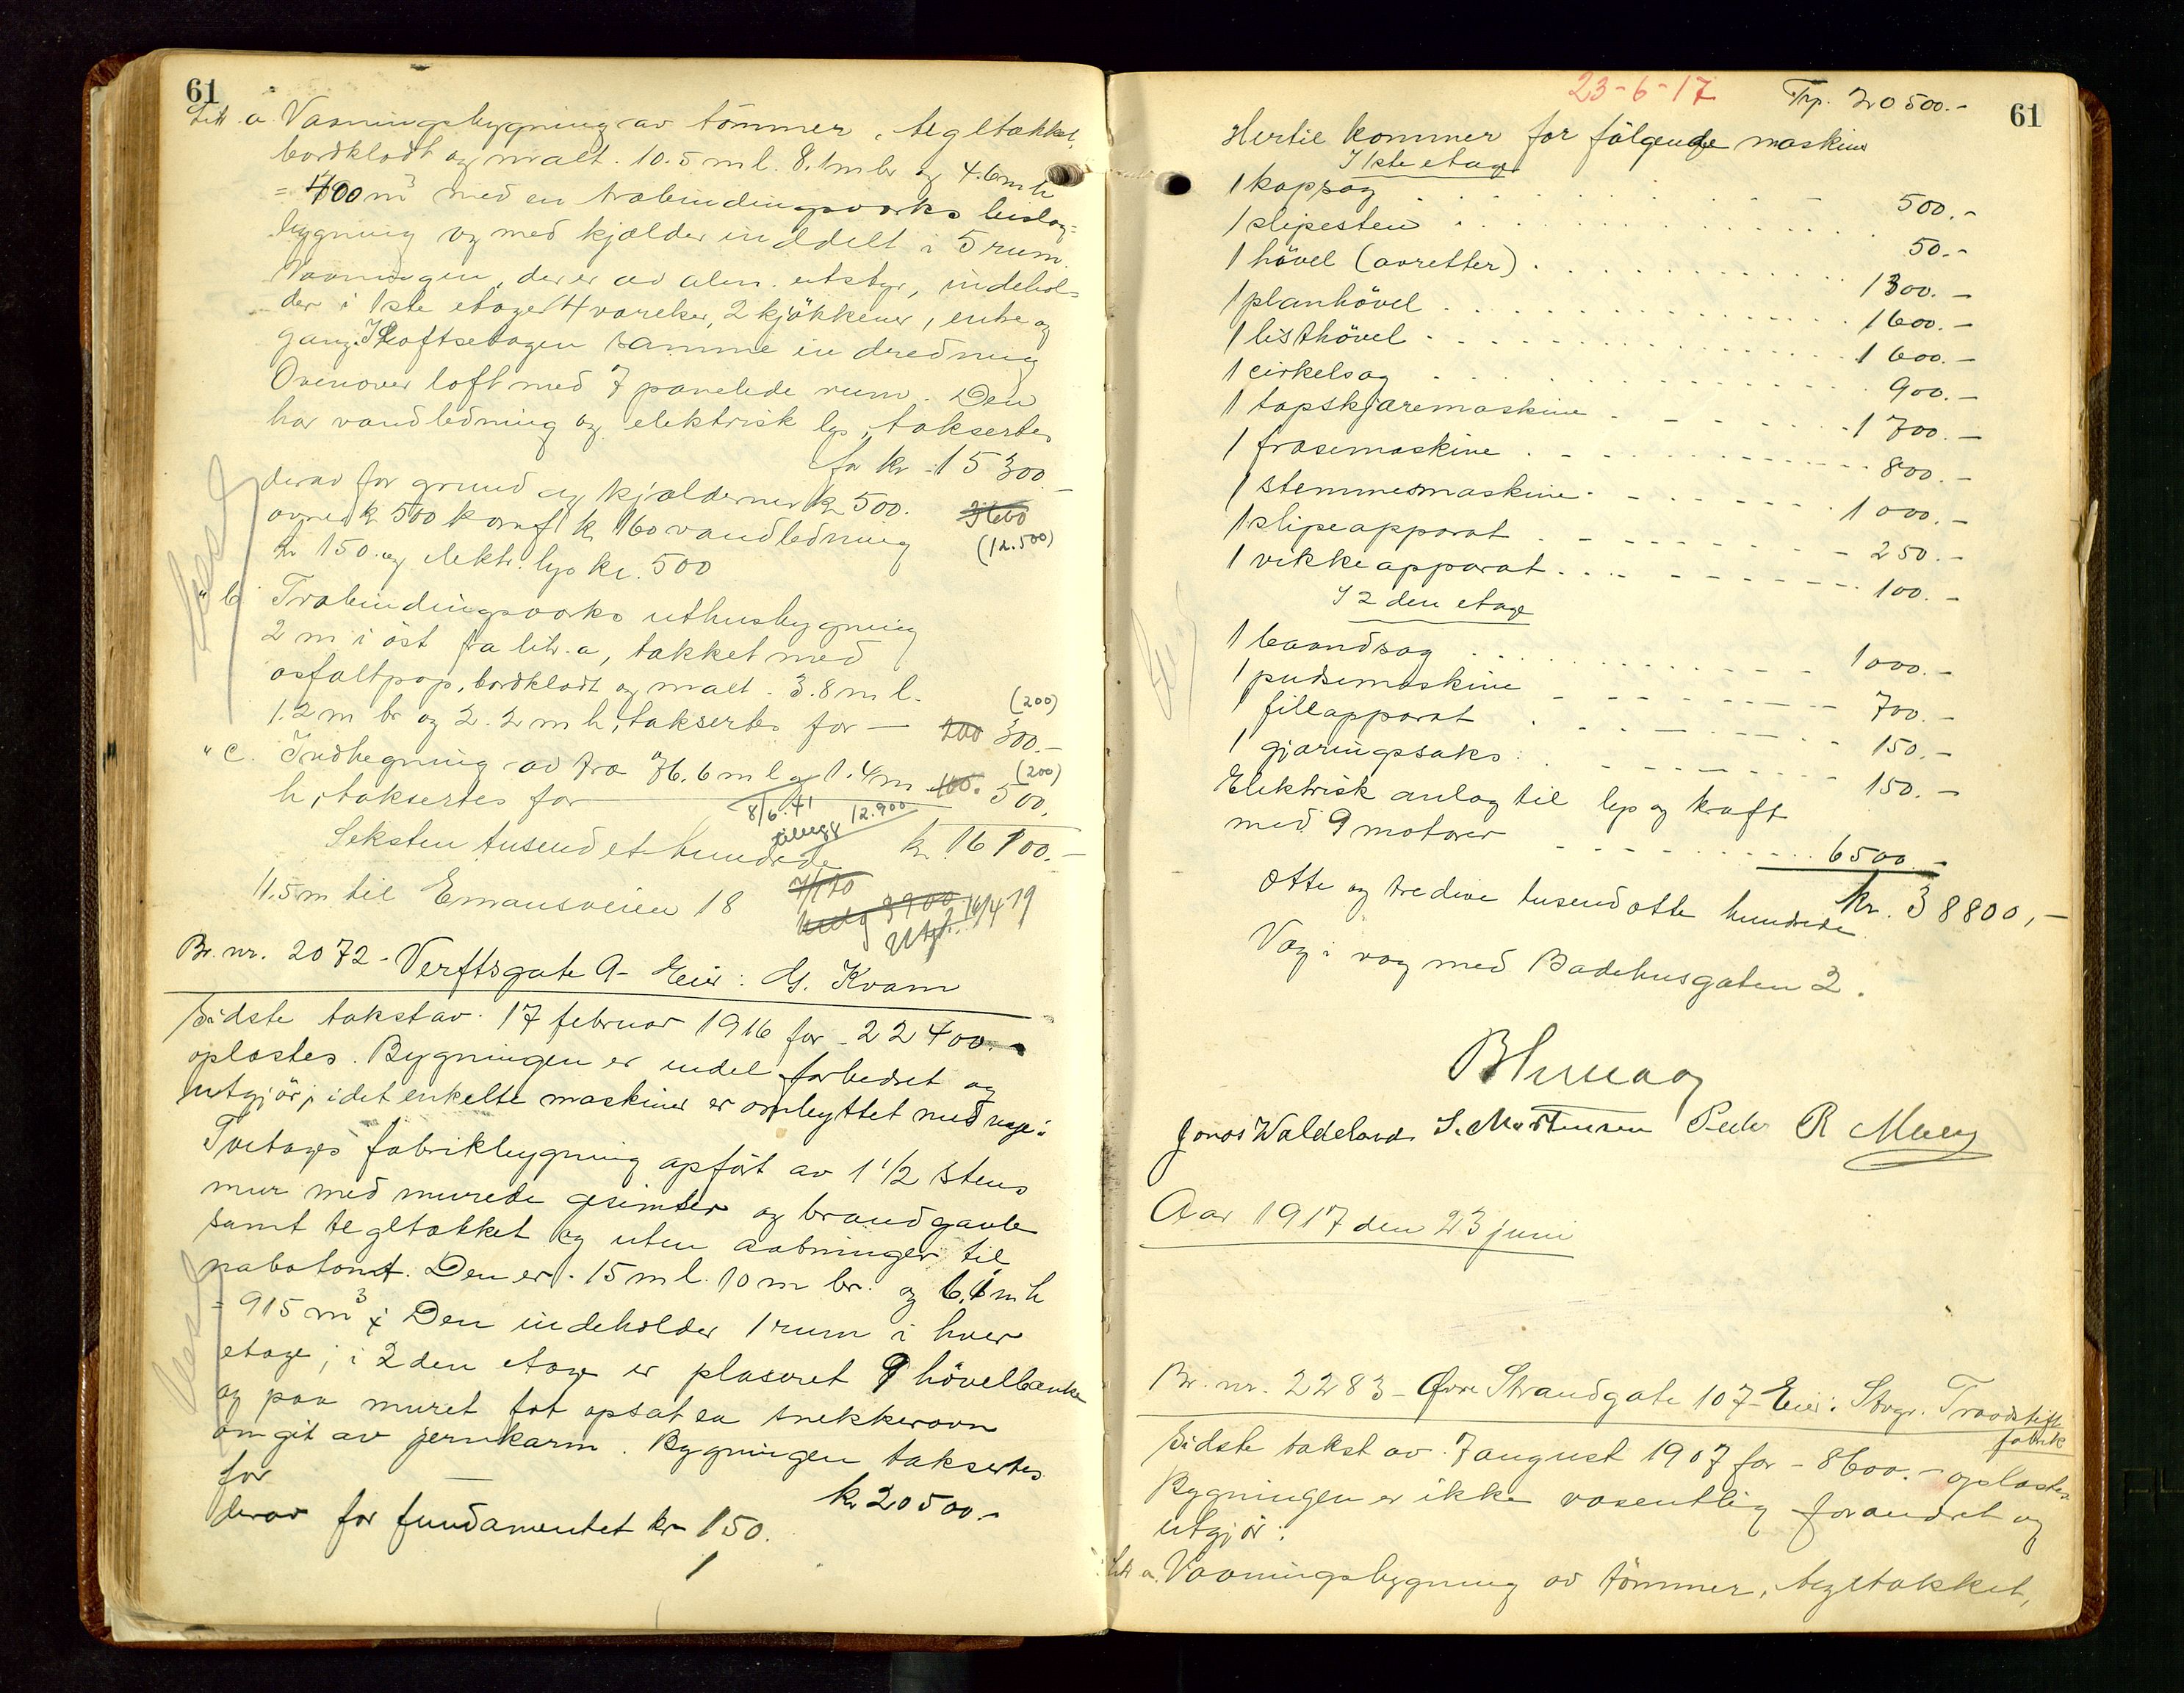 61
Litr. a. Vaaningsbygning av tømmer, tegltækket,
bordklædt og malt. 10.5 m l. 8.1 m br og 4.6 m h
= 400 m³ med en træbindingsverks bislag-
bygning og med kjælder inddelt i 5 rum.
Vaaningen, der er av alm. utstyr, indehol-
der i 1ste etage 4 værelser, 2 kjøkkener, entre og
gang. I loftsetagen samme indredning
Ovenover loft med 7 panelede rum. Den
har vandledning og elektrisk lys, takseres
for kr 15 300.-
derav for grund og kjældermur kr 500.
ovner kr 500 komf. kr 160 vandledning
kr 150 og elektr. lys kr. 500
(12.500)
" b Træbindingsverks uthusbygning
2 m i øst fra litr. a, tækket med
asfaltpap, bordklædt og malt. 3.8 m l.
(200)
1.2 m br og 2.2 m h, takseres for — 200 300.-
" c. Indhegning av træ 76.6 m l og 1.4 m
(200)
h, takseres for — 100. 500.
8/6.41 tillegg 12.900
Seksten tusend et hundrede kr. 16 100.-
11.5 m til Emausveien 18
16/4 19
Br. nr. 2072 - Verftsgate 9 - Eier: G. Kvam
Sidste takst av 17 februar 1916 for - 22 400.-
oplæstes. Bygningen er endel forbedret og
utgjør, idet enkelte maskiner er ombyttet med nye:
Toetages fabrikbygning opført av 1 1/2 stens
mur med murede gesimser og brandgavle
samt tegltækket og uten aabninger til
nabotomt. Den er 15 m l. 10 m br. og 6.1 m h
= 915 m³; Den indeholder 1 rum i hver
etage; i 2den etage er plaseret 9 hövelbænke
og paa muret fot opsat en snekkerovn
omgit av jernkarm. Bygningen takseres
for — kr 20 500.-
derav for fundamentet kr 150.
23-6-17 Trp. 20 500.-
61
Hertil kommer for følgende maskiner
I 1ste etage
1 kapsag 500.-
1 slipesten 50.-
1 hövel (avretter) 1300.-
1 planhövel 1600.-
1 listhövel 1600.-
1 cirkelsag 900.-
1 tapskjæremaskine 1700.-
1 fræsemaskine 800.-
1 stemmemaskine 1000.-
1 slipeapparat 250.-
1 vikkeapparat 100.-
I 2den etage
1 baandsag 1000.-
1 pudsemaskine 700.-
1 fillapparat 150.-
1 gjæringssaks 150.-
Elektrisk anlæg til lys og kraft
med 9 motorer 6500.-
Otte og tredive tusend otte hundrede kr. 38800,-
Væg i væg med Badehusgaten 2.
Jonas Waldeland S. Mortensen Peder R Meling
Aar 1917 den 23 juni
Br. nr. 2283 - Øvre Strandgate 107 - Eier: Stvgr. Traadstifte
fabrik
Sidste takst av 7 august 1907 for - 8600.- oplæstes.
Bygningen er ikke væsentlig forandret og
utgjør:
Litr a. Vaaningsbygning av tømmer, tegltækket,